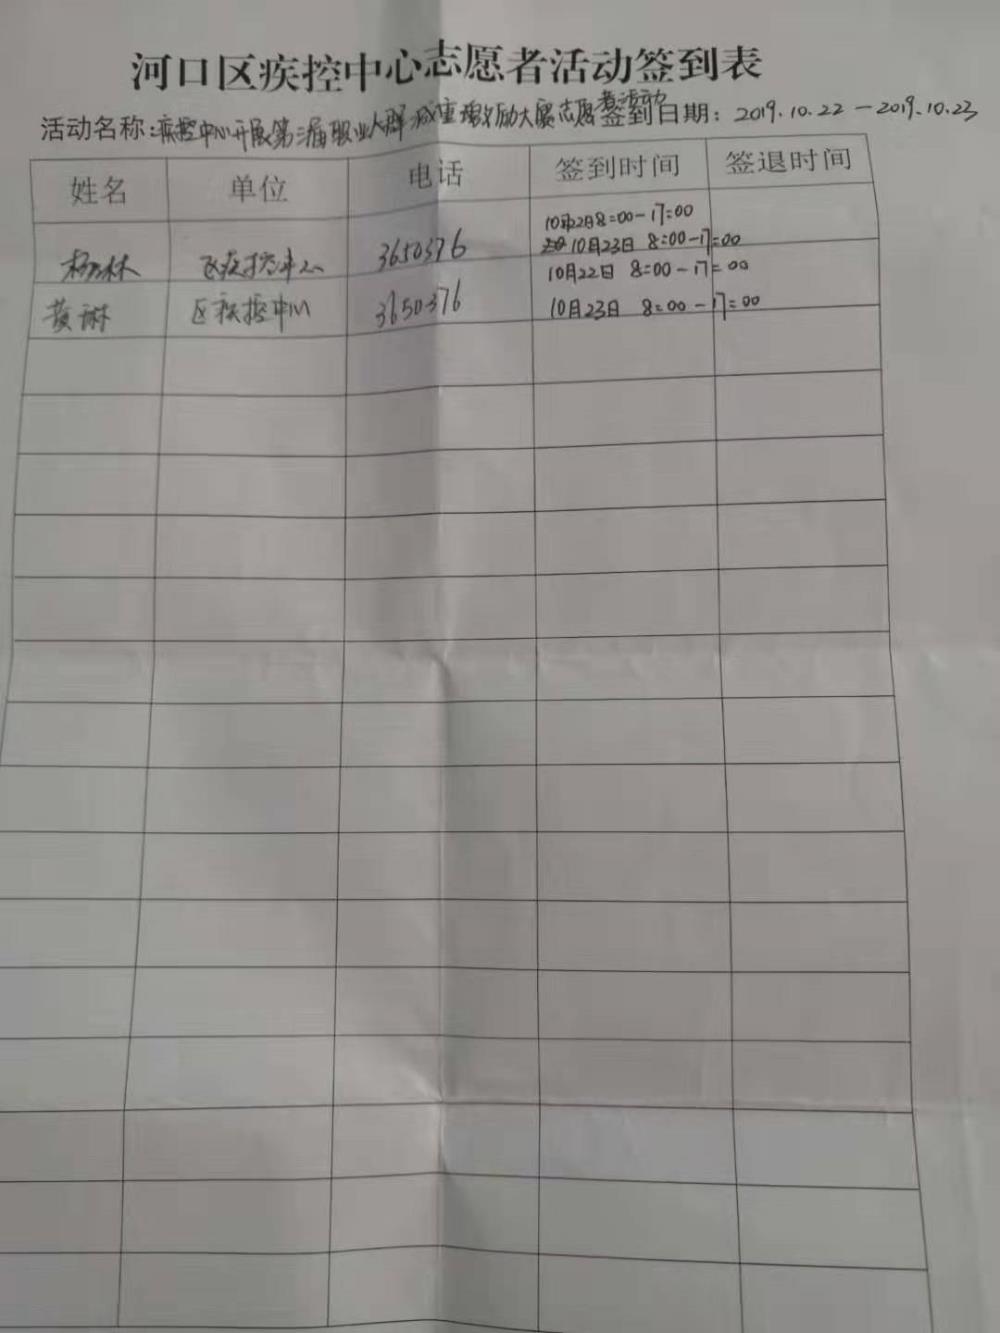 河口区疾控中心志愿者活动签到表
活动名称:疾控中心开展第三届职业人群减重激励大赛志愿者活动 签到日期：2019.10.22－2019.10.23
姓名 单位 电话 签到时间 签退时间
林 区疾控中心 3650376 10月22日8:00-17:00
10月23日 8:00-17:00
黄琳 区疾控中心 3650376 10月22日 8:00-17:00
10月23日 8:00-17:00